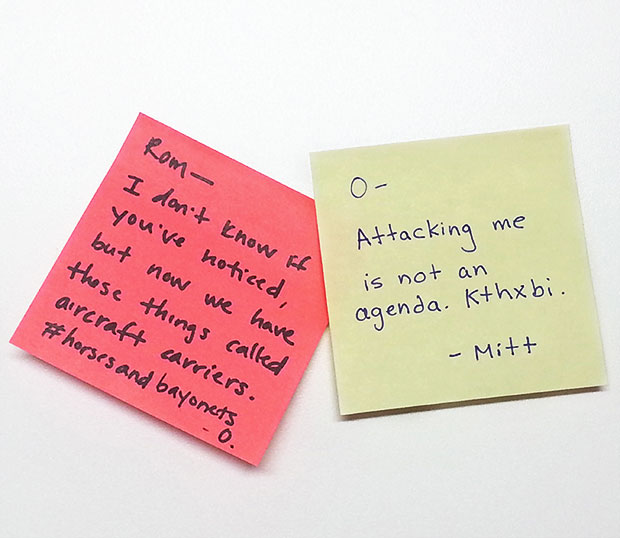 Rom—
I don't know if
you've noticed,
but now we have
these things called
aircraft carriers.
#horsesandbayonets
- O.
O -
Attacking me
is not an
agenda. Kthxbi.
- Mitt